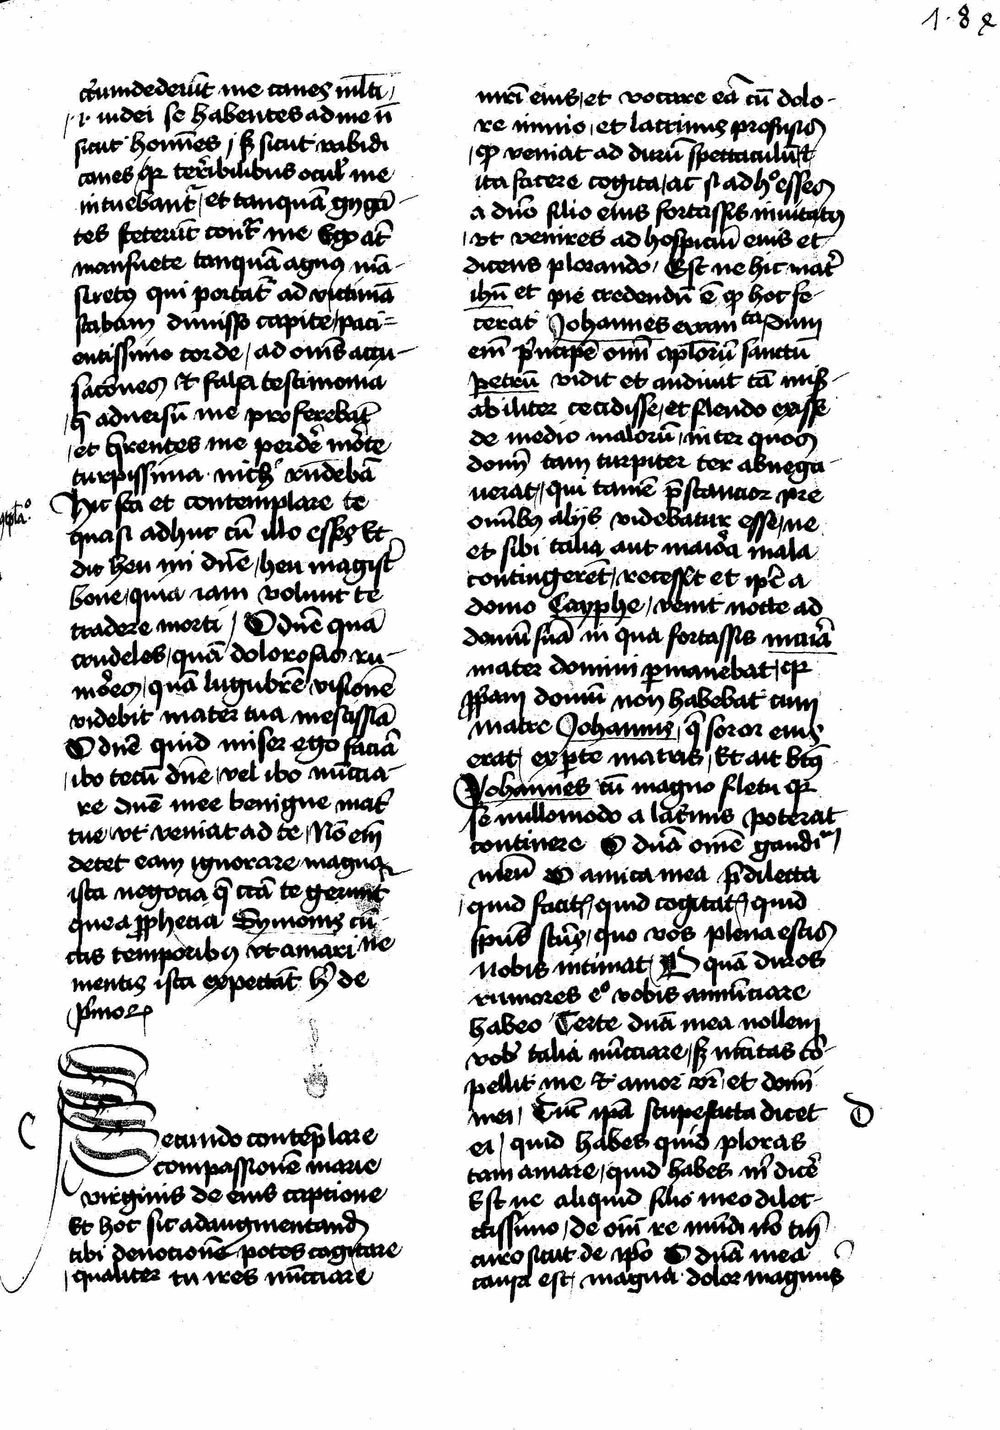 1·8 e
cͬcumdederūt me canes ml̄ti
.i. iudei se habentes ad me nō
sicut hoīnes / sꝫ sicut rabidi
canes qꝛ terͥbilibus oculꝭ me
intuebantᷣ / et tanquā gyga-
tes steterūt contᷓ me Ego aūt
mansuete tanquā agnꝯ mā-
suetꝯ qui portatᷣ ad victimā
stabam dimisso capite / paci=
entissimo corde / ad om̄s accu-
sacōnes et falsa testimonia
q̄ adversū me proferebāt
et q̄rentes me perdeͬ moͬte
turpissima nichͥ rn̄debā
Hic sta et contemplare te
9tēplaͦ.
quasi adhuc cū illo esses Et
dic heu mi dn̄e / heu magistͬ
bone / quia iam volunt te
tradere morti / O dn̄e quā
crudeles / quā dolorosas ru-
moͬes / quā lugubrē visionē
videbit mater tua mestissīā
O dn̄e quid miser ego faciā
ibo tecū dn̄e / vel ibo nūccia-
re dn̄e mee benigne matͥ
tue / vt veniat ad te / Nō em̄
decet eam ignorare magna
ista negocia q̄ circa te gerunt
que a ꝓphecia Symonis cū-
ctis temporibꝯ vt amari ne
mentis ista expectāt h̄ de
pͥmo
C
Secundo conteplare
compassionē marie
virginis de eius captione
Et hoc sic ad augmentand
tibi devocionē potes cogitare
qualiter tu ires nūcciare
mr̄i eius / et vocare eā cū dolo-
re nimio / et lacrimis profusis
qꝫ veniat ad durū spectaculū / et
ita facere cogita / ac si ad hͦ esses
a dn̄o filio eius fortassis invitatꝯ
vt venires ad hospiciū eius et
dicens plorando / Est ne hic matͬ
ih̄u et pie credendū ē qꝫ hoc fe-
cerat Johannes ewan ᵗᵃ / Dum
em̄ pͥncipē om̄ apl̄orū sanctū
petrū vidit et audivit tā mis-
abiliter cecidisse / et flendo exisse
de medio malorū / inter quos
dom̄ tam turpiter ter abnega
verat / qui tamē p̄stancior pre
om̄ibꝯ alijs videbatur esse / ne
et sibi talia aut maioͬa mala
contingerēt / recessit et ip̄e a
domo Cayphe / venit nocte ad
domū suā in qua fortassis maͥa
mater domini ꝑmanebat / qꝛ
ꝓpͥam domū non habebat cum
matre Johannis / q̄ soror eius
erat / ex ꝑte matris / Et ait bt̄ꝯ
Johannes cū magno fletu qꝛ
se nullomodo a lacͥmis poterat
continere O dn̄a om̄e gaudiᵘᵐ
meū O amica mea p̄dilecta
quid facitꝭ / quid cogitatꝭ / quid
sp̄us sctūs / quo vos plena estis
nobis intimat / O quā duros
rumores eͦ vobis annūciare
habeo Certe dn̄a mea nollem
vobꝭ talia nūcciare / sꝫ nc̄itas cō-
pellit me et amor vr̄i / et domī
mei / Tūc ipā stupefacta dicet
D
ei / quid habes quid ploras
tam amare / quid habes mͥ dicēͬ
Est ne aliquid filio meo dilec-
tissimo / de om̄i re mūdi nō tm̄
curo sicut de ip̄o O dn̄a mea
causa est / magna dolor magnus